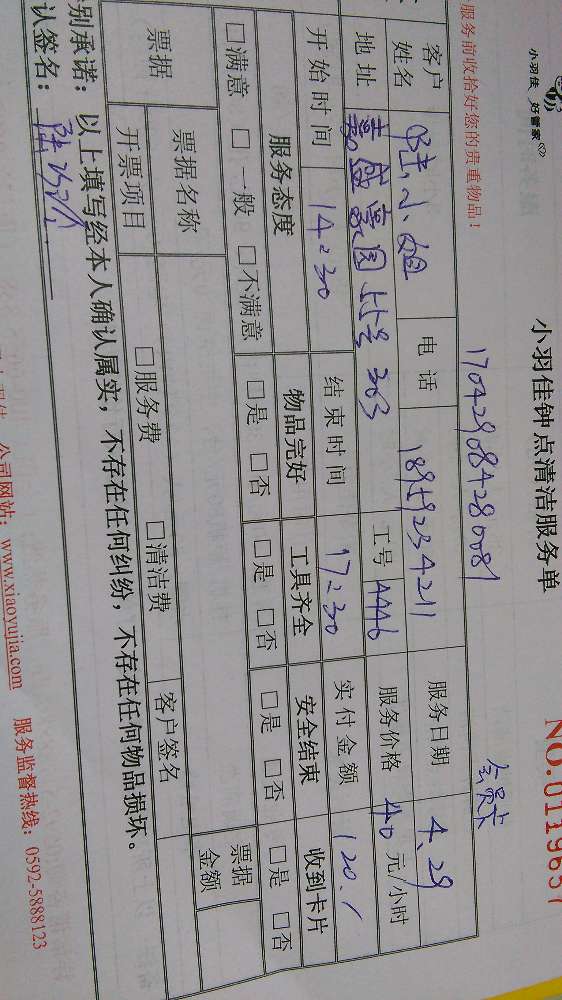 小羽佳 好管家
小羽佳钟点清洁服务单
NO.0119657
服务前收拾好您的贵重物品！
17042908428008
会员卡
客户姓名 陆小姐 电话 18959234211 服务日期 4.29
地址 嘉盛豪园55号303 工号 AAA6 服务价格 40 元/小时
开始时间 14:30 结束时间 17:30 实付金额 120.
服务态度 物品完好 工具齐全 安全结束 收到卡片
□满意 □一般 □不满意 □是 □否 □是 □否 □是 □否 □是 □否
票据 票据名称 票据金额
开票项目 □服务费 □清洁费 客户签名
别承诺：以上填写经本人确认属实，不存在任何纠纷，不存在任何物品损坏。
认签名：
公司网站：www.xiaoyujia.com 服务监督热线：0592-5888123